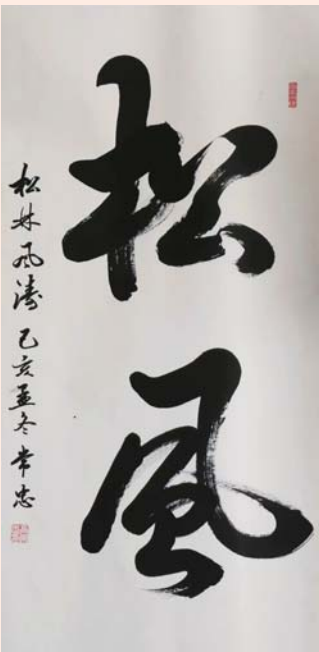 松風
松林风涛 己亥孟冬 常忠